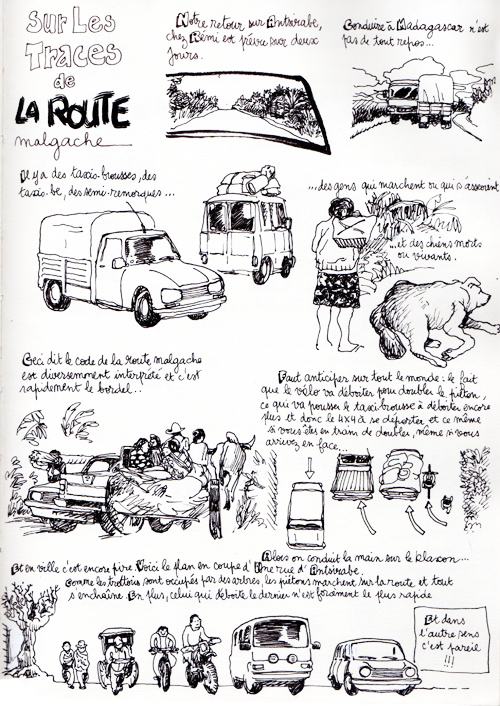 SUR LES
TRACES
de
LA ROUTE
malgache
Notre retour sur Antsirabe,
chez Rémi est prévu sur deux
jours.
Conduire à Madagascar n'est
pas de tout repos...
Il y a des taxis-brousses, des
taxis-be, des semi-remorques...
...des gens qui marchent ou qui s'assoient
...et des chiens morts
ou vivants.
Ceci dit le code de la route malgache
est diversemment interprété et c'est
rapidement le bordel..
Faut anticiper sur tout le monde: le fait
que le vélo va déboiter pour doubler le piéton,
ce qui va pousser le taxi-brousse à déboiter encore
plus et donc le 4x4 à se déporter et ce même
si vous êtes en train de doubler, même si vous
arrivez en face.
Alors on conduit la main sur le klaxon...
Et en ville c'est encore pire. Voici le plan en coupe d'Une rue d'Antsirabe.
Comme les trottoirs sont occupés par des arbres, les piétons marchent sur la route et tout
s'enchaîne. En plus, celui qui déboite le dernier n'est forcément le plus rapide
Et dans
l'autre sens
c'est pareil
!!!